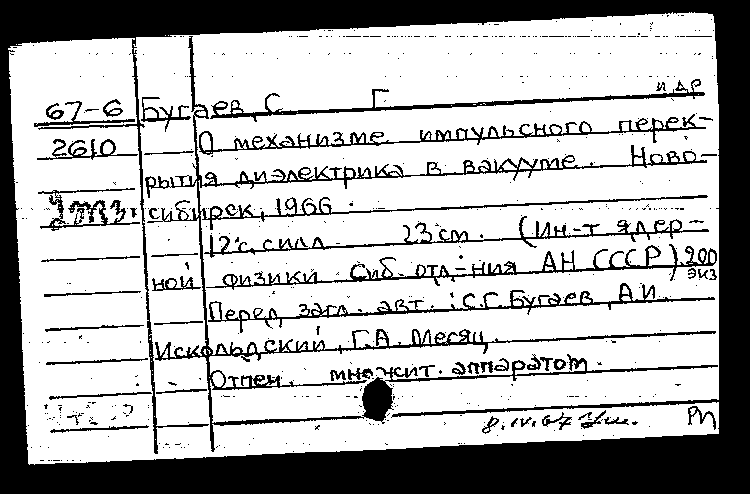 67-6 Бугаев, С Г и др
2610 О механизме импульсного перек-
рытия диэлектрика в вакууме. Ново-
сибирск, 1966.
12 с. с илл 23 см. (Ин-т ядер-
ной физики Сиб. отд-ния АН СССР) 200 экз
Перед загл. авт.: С.Г. Бугаев, А.И.
Искольдский, Г.А. Месяц.
Отпеч. множит. аппаратом.
8.IV.67